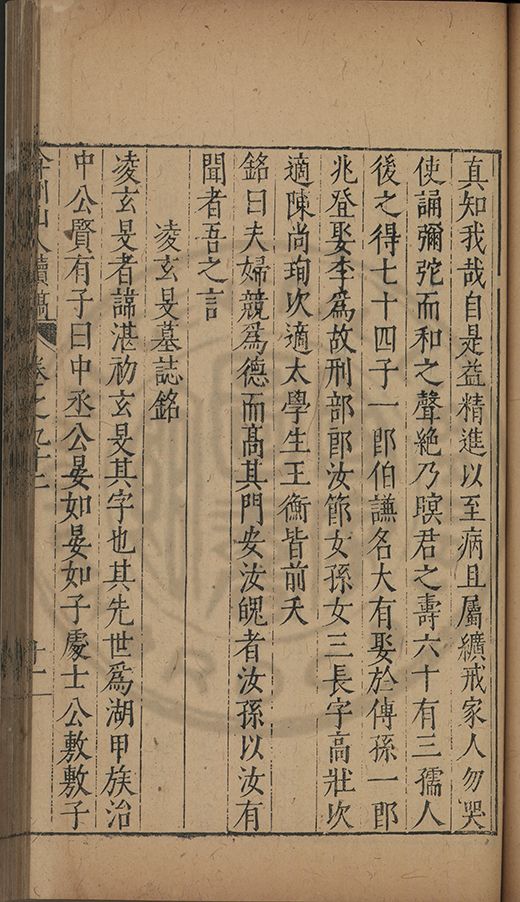 真知我哉自是益精進以至病且屬纊戒家人勿哭
使誦彌陀而和之聲絶乃瞑君之壽六十有三孺人
後之得七十四子一即伯謙名大有娶於傅孫一即
兆登娶李爲故刑部郎汝節女孫女三長字高壯次
適陳尚珣次適太學生王衡皆前夭
銘曰夫婦競爲德而髙其門安汝魄者汝孫以汝有
聞者吾之言
凌玄旻墓誌銘
凌玄旻者諱湛初玄旻其字也其先世爲湖甲族治
中公賢有子曰中丞公晏如晏如子處士公敷敷子
弇州山人續稿 卷之九十二 十一